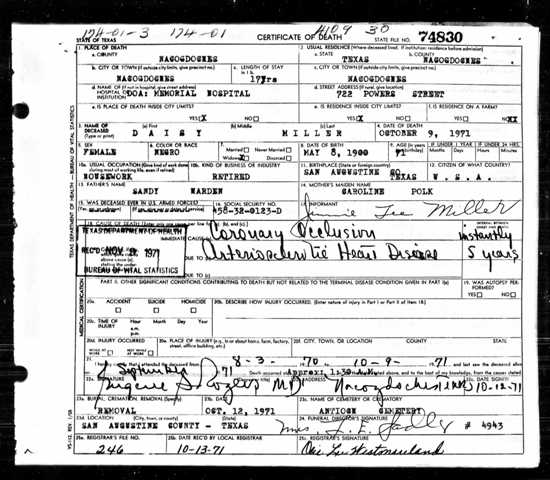 174-01-3 174-01 4109 30
STATE OF TEXAS CERTIFICATE OF DEATH STATE FILE NO. 74830
1. PLACE OF DEATH 2. USUAL RESIDENCE (Where deceased lived. If institution: residence before admission)
a. COUNTY a. STATE b. COUNTY
NACOGDOCHES TEXAS NACOGDOCHES
b. CITY OR TOWN (If outside city limits, give precinct no.) c. LENGTH OF STAY c. CITY OR TOWN (If outside city limits, give precinct no.)
NACOGDOCHES 17Yrs NACOGDOCHES
d. NAME OF (If not in hospital, give street address) d. STREET ADDRESS (If rural, give location)
HOSPITAL OR DOA: MEMORIAL HOSPITAL 722 POWERS STREET
e. IS PLACE OF DEATH INSIDE CITY LIMITS? e. IS RESIDENCE INSIDE CITY LIMITS? f. IS RESIDENCE ON A FARM?
YES X NO YES X NO YES NO XX
3. NAME OF DECEASED (a) First (b) Middle (c) Last 4. DATE OF DEATH
(Type or print) DAISY MILLER OCTOBER 9, 1971
5. SEX 6. COLOR OR RACE 7. Married Never Married 8. DATE OF BIRTH 9. AGE IF UNDER 1 YEAR IF UNDER 24 HRS.
FEMALE NEGRO Widowed X Divorced MAY 8, 1900 71 Months Days Hours Minutes
10a. USUAL OCCUPATION (Give kind of work done 10b. KIND OF BUSINESS OR INDUSTRY 11. BIRTHPLACE (State or foreign country) 12. CITIZEN OF WHAT COUNTRY?
during most of working life, even if retired) SAN AUGUSTINE CO.
HOUSEWORK RETIRED TEXAS U.S.A.
13. FATHER'S NAME 14. MOTHER'S MAIDEN NAME
SANDY WARDEN CAROLINE POLK
15. WAS DECEASED EVER IN U.S. ARMED FORCES? 16. SOCIAL SECURITY NO.
458-32-0123-D Jimmie Lee Miller
18. CAUSE OF DEATH
TEXAS DEPARTMENT OF HEALTH Coronary Occlusion instantly
REC'D NOV 1971 Arteriosclerotic Heart Disease 5 years
BUREAU OF VITAL STATISTICS
PART II. OTHER SIGNIFICANT CONDITIONS CONTRIBUTING TO DEATH BUT NOT RELATED TO THE TERMINAL DISEASE CONDITION GIVEN IN PART I(a) 19. WAS AUTOPSY PERFORMED?
YES NO
20a. ACCIDENT SUICIDE HOMICIDE 20b. DESCRIBE HOW INJURY OCCURRED. (Enter nature of injury in Part I or Part II of Item 18)
20c. TIME OF INJURY Hour Month Day Year
a.m.
p.m.
20d. INJURY OCCURRED 20e. PLACE OF INJURY (e.g., in or about home, farm, factory, street, office building, etc.) 20f. CITY, TOWN, OR LOCATION COUNTY STATE
WHILE AT WORK NOT WHILE AT WORK
21. I hereby certify that I attended the deceased from 8-3- 70 10-9- 71
71 Death occurred at Approx. 1:30 A.M.
22a. SIGNATURE 22b. ADDRESS 22c. DATE SIGNED
Eugene M.D. Nacogdoches 10-12-71
23a. BURIAL, CREMATION, REMOVAL (Specify) 23b. DATE 23c. NAME OF CEMETERY OR CREMATORY
REMOVAL OCT. 12, 1971 ANTIOCH CEMETERY
23d. LOCATION (City, town, or county) (State) 24. FUNERAL DIRECTOR'S SIGNATURE
SAN AUGUSTINE COUNTY - TEXAS Mrs. L. E. # 4943
25a. REGISTRAR'S FILE NO. 25b. DATE REC'D BY LOCAL REGISTRAR 25c. REGISTRAR'S SIGNATURE
246 10-13-71 Westmoreland